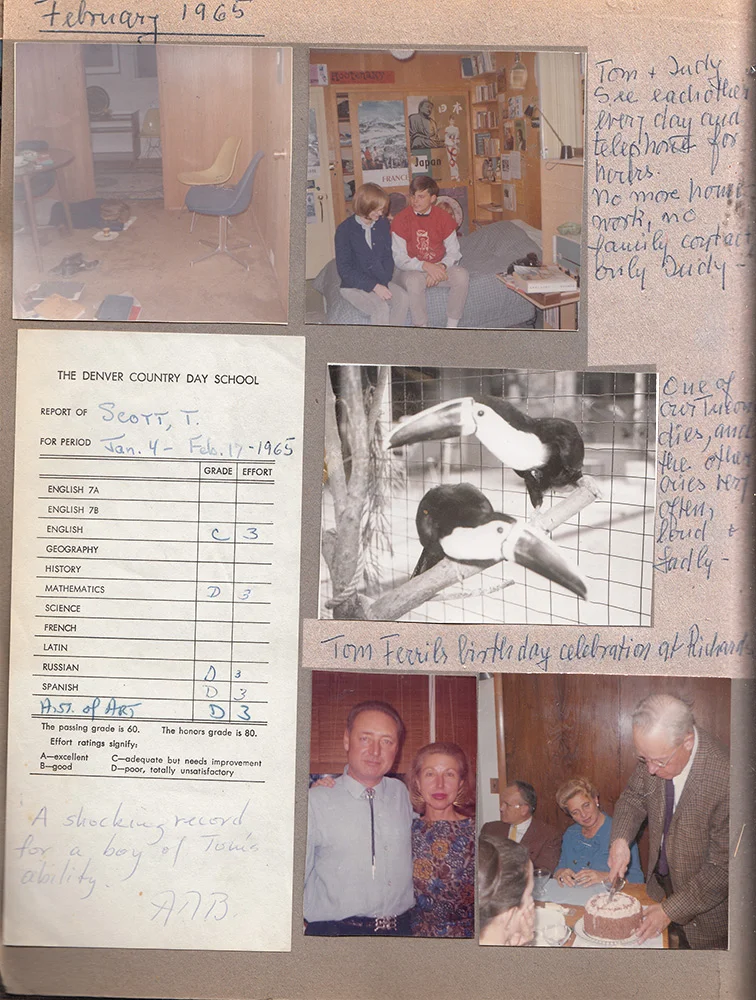 February 1965
Tom + Judy
See each other
every day and
telephone for
hours.
No more home
work, no
family contact
only Judy -
FRANCE
日本
Japan
THE DENVER COUNTRY DAY SCHOOL
REPORT OF Scott, T.
FOR PERIOD Jan. 4 - Feb. 17 - 1965
GRADE EFFORT
ENGLISH 7A
ENGLISH 7B
ENGLISH C 3
GEOGRAPHY
HISTORY
MATHEMATICS D 3
SCIENCE
FRENCH
LATIN
RUSSIAN D 3
SPANISH D 3
Hist. of ART D 3
The passing grade is 60. The honors grade is 80.
Effort ratings signify:
A—excellent C—adequate but needs improvement
B—good D—poor, totally unsatisfactory
A shocking record
for a boy of Tom's
ability.
One of
our
dies, and
the other
cries very
often,
loud +
sadly -
Tom Ferrils birthday celebration at Richards